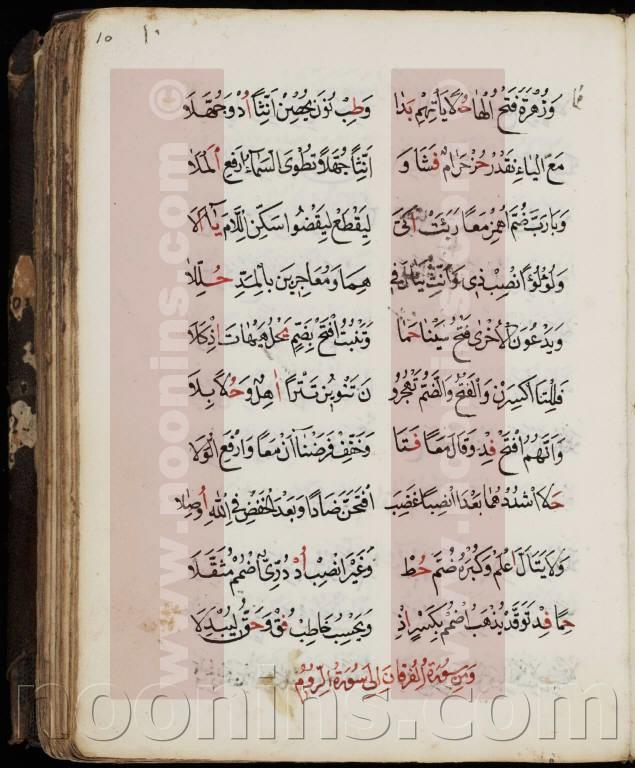 10 ١٠
وَزُهْرَةَ فَتْحُ الْهَا حُلًا يَأْتِهِمْ بَدَا وَطِبْ نُونَ يُحْصِنْ أَنِّثًا أُدْ وَجُهِّلَا
مَعَ الْيَاءِ نَقْدِرْ حُزْ حَرَامٌ فَشَا وَ أَنِّثًا جُهِّلًا نَطْوِى السَّمَاءَ ارْفَعِ الْمَلَا
وَبَا رَبِّ ضُمَّ اهْمِزْ مَعًا رَبَئَتْ أَتَى لِيَقْطَعْ لِيَقْضُوا سَكِّنِ اللَّامَ يَا أُلَا
وَلُؤْلُؤًا انْصِبْ ذِي وَأَنِّثْ يَنَالُ فِي هِمَا وَمُعَاجِزِينَ بِالْمَدِّ حُلِّلَا
وَيَدْعُونَ الْأُخْرَى فَتْحُ سَيْنَا حِمَا وَتَنْبُتُ افْتَحْ بِضَمٍّ يَحْلُ هَيْهَاتَ اذْ كِلَا
فَلِلتَّا اكْسِرَنْ وَالْفَتْحُ وَالضَّمُّ تَهْجُرُو نَ تَنْوِينُ تَتْرًا أَهْلٌ وَحُلًا بِلَا
وَإِنَّهُمُ افْتَحْ فِدْ وَقَالَ مَعًا فَتَا وَخَفِّفْ فَرَضْنَا أَنْ مَعًا وَارْفَعِ الْوِلَا
حَلَا اشْدُدْ هُمَا بَعْدُ انْصِبًا غَضِبَ افْتَحَنَّ ضَادًا وَبَعْدُ الْخَفْضُ فِي اللَّهِ أُوصِلَا
وَلَا يَتَأَلَّ اعْلَمْ وَكُبْرُهُ ضُمَّ حُطْ وَغَيْرَ انْصِبْ أُدْ دُرِّيٌّ اضْمُمْ مُثَقِّلَا
حِمًا فِدْ تَوَقَّدْ يُذْهِبُ اضْمُمْ بِكَسْرٍ اذْ وَيَحْسِبُ خَاطِبْ فُقْ وَحَقٌّ لِيُبْدِلَا
وَمِنْ سُورَةِ الْفُرْقَانِ إِلَى سُورَةِ الرُّومِ
© www.noonins.com
© www.noonins.com
noonins.com